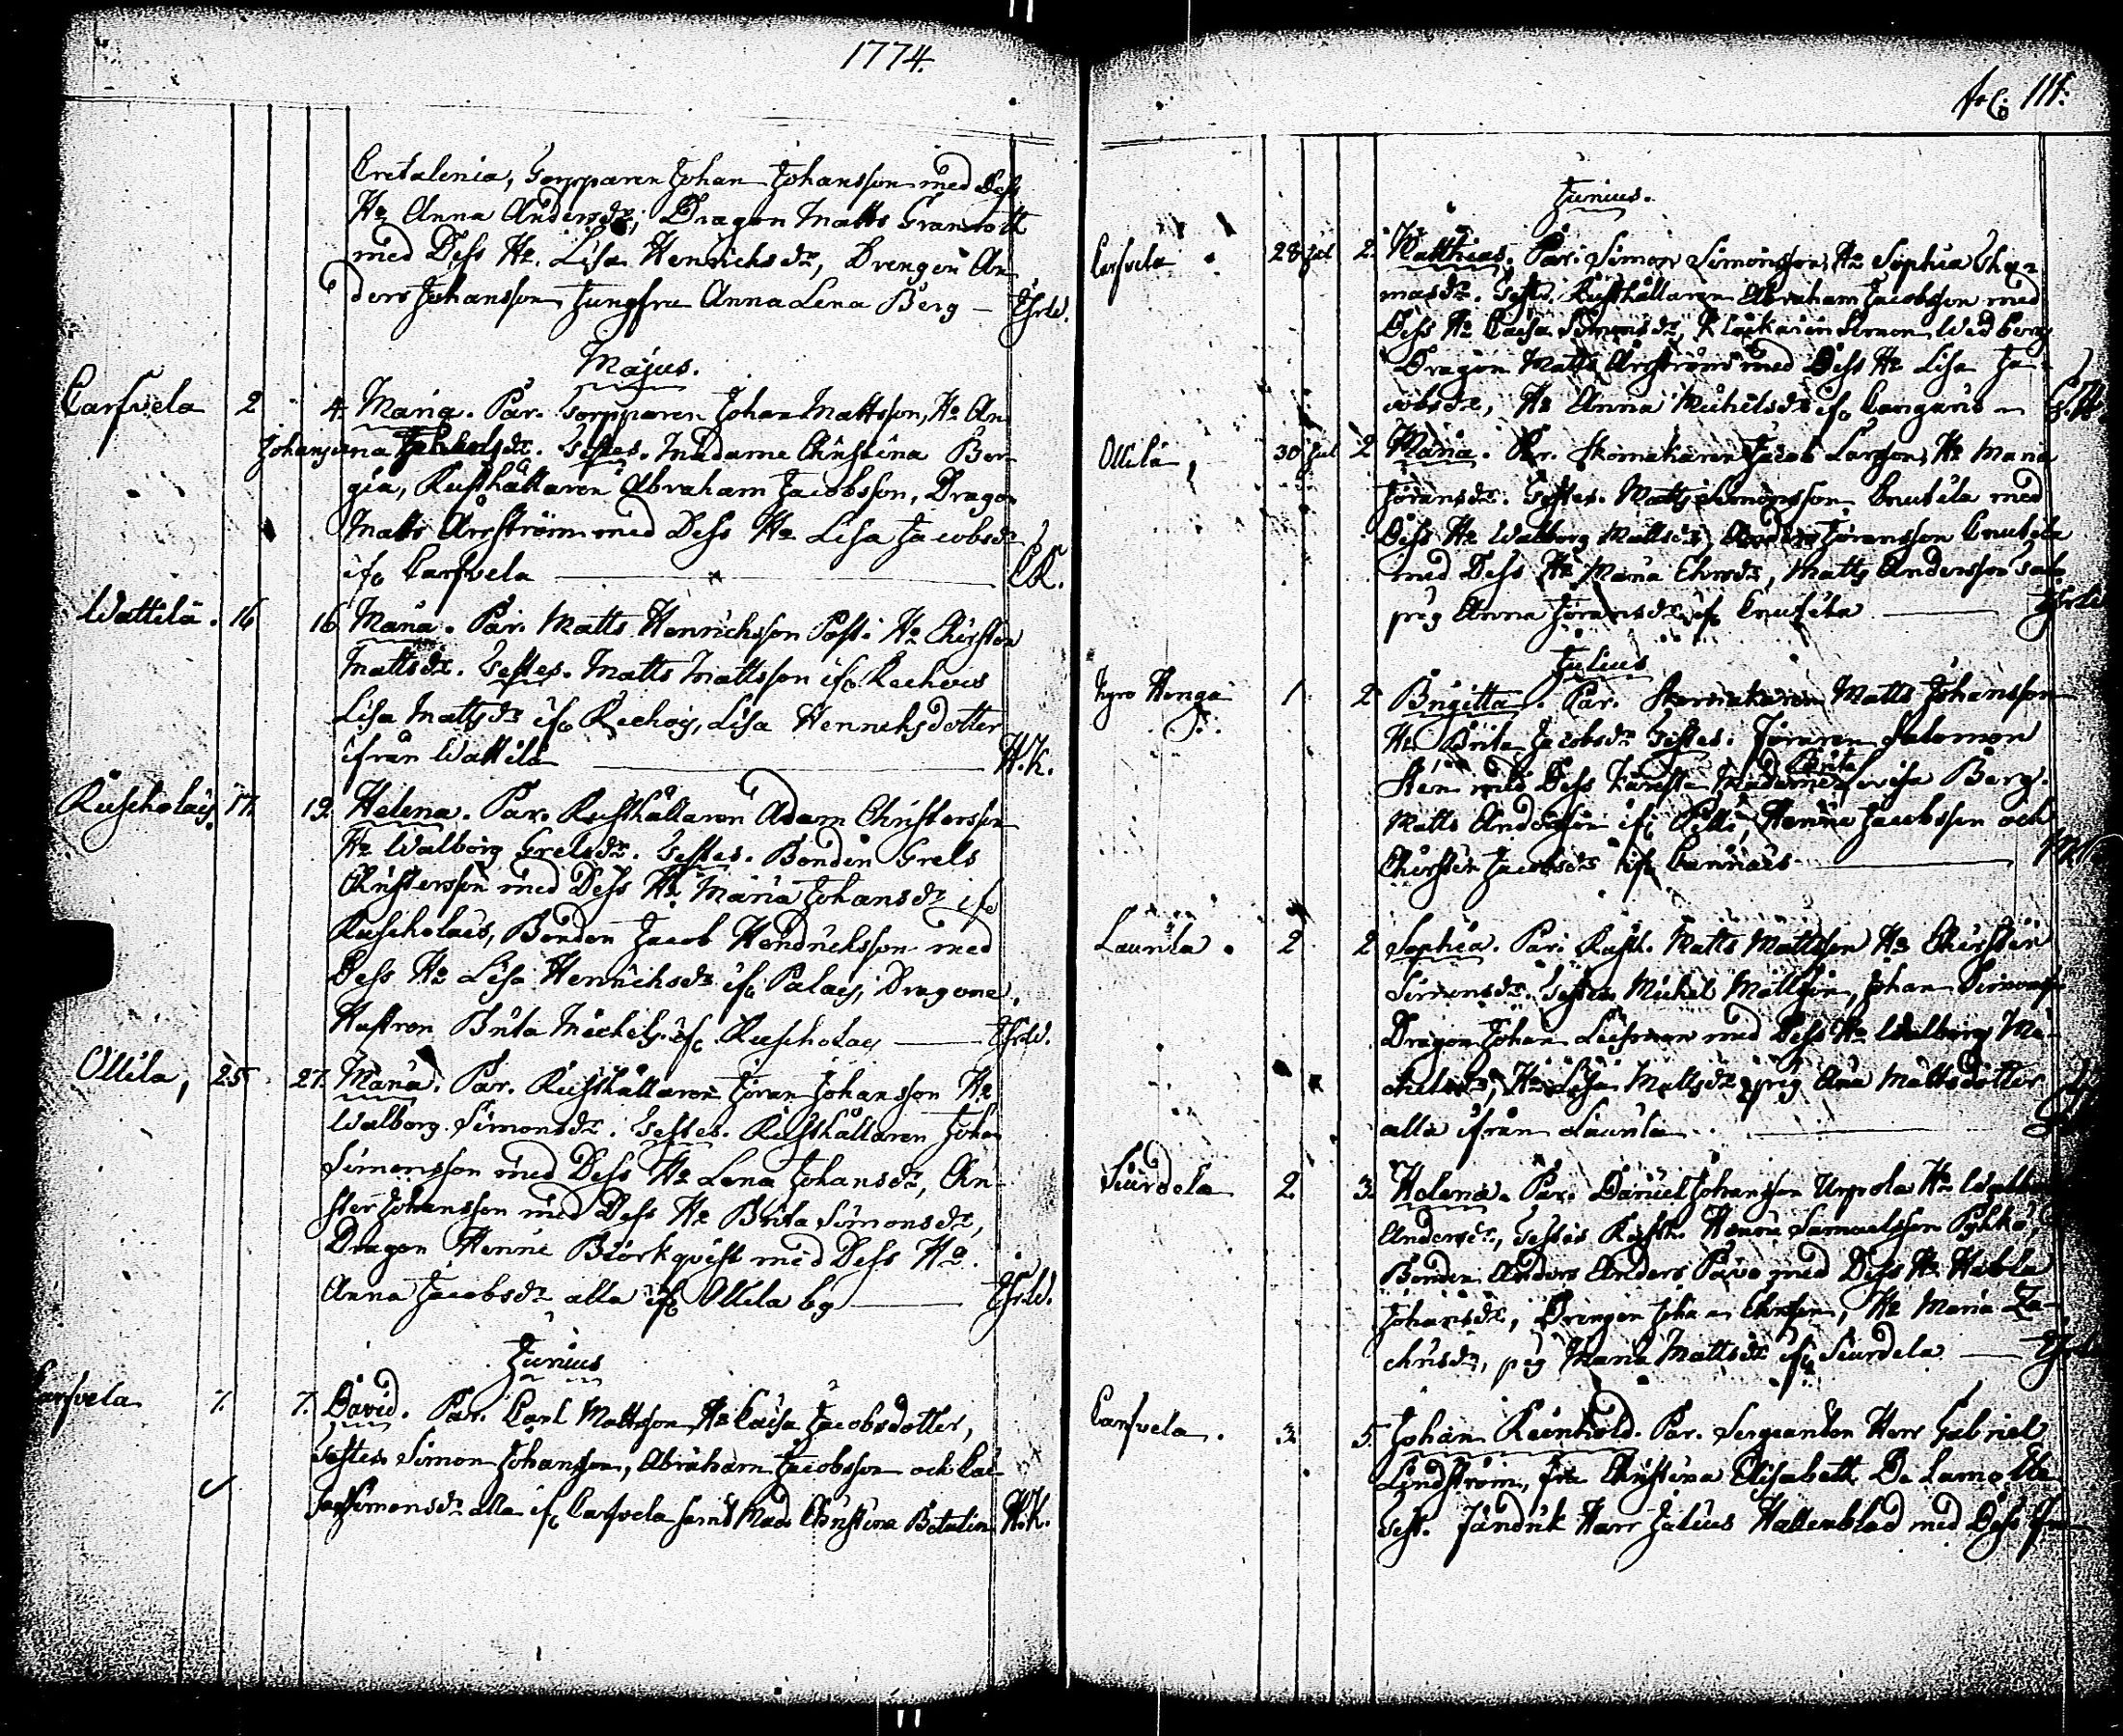 1774.
Cretalenia, Torpparen Johan Johansson med Dess
Hu Anna Andersdr, Dragon Matts Granrott
med Dess Hu. Lisa Henrichsdr, Drengen An
ders Johansson Jungfru Anna Lena Berg —
Majus.
Carsvela 2 4. Maria. Par. Torpparen Johan Mattsson, Hu An
Johansdr. Testes. Madame Christina Ber
gia, Rusthållaren Abraham Jacobsson, Dragon
Matts Årström med Dess Hu Lisa Jacobsdr
ifr Carsvela — CK.
Wattila. 16 16 Maria. Par. Matts Henrichsson Hu Chirstin
Mattsdr. Testes. Matts Mattsson ifr Reehois
Lisa Mattsdr ifr Reehois, Lisa Henrichsdotter
ifrån Wattila — H.K.
Ruskolais. 17. 19. Helena. Par. Rusthållaren Adam Christersson
Hu Walborg Grelsdr. Testes. Bonden Grels
Christersson med Dess Hu Maria Johansdr ifr
Ruskolais, Bonden Jacob Hendricksson med
Dess Hu Lisa Henrichsdr ifr Palais, Dragone
Hustron Brita Michels. ifr Ruskolais —
Ollila, 25 27. Maria. Par. Rusthållaren Jöran Johansson Hu
Walborg Simonsdr. Testes. Rusthållaren Johan
Simonsson med Dess Hu Lena Johansdr, Chri
ster Johansson med Dess Hu Brita Simonsdr,
Dragon Henric Biörkqvist med Dess Hu.
Anna Jacobsdr alla ifr Ollila by —
Junius
Carsvela 7. 7. David. Par. Carl Mattsson Hu Caisa Jacobsdotter,
Testes Simon Johansson, Abraham Jacobsson och Cai
sa Simonsdr alla ifr Carsvela samt Mad. Christina Betulin H.K.
fol. 111.
Junius.
Carsvela 28 Jul 2. Matthias. Par. Simon Simonsson, Hu Sophia Tho
masdr. Testes. Rusthållaren Abraham Jacobsson med
Dess Hu Caisa Simonsdr, Klockaren Simon Widberg
Dragon Matts Årström med Dess Hu Lisa Ja
cobsdr, Hu Anna Michelsdr ifr
Ollila, 30 Jul 2 Maria. Par. Skomakaren Jacob Larsson, Hu Maria
Jöransdr. Testes. Matts Simonsson Cnutila med
Dess Hu Walborg Mattsdr, Anders Jöransson Cnutila
med Dess Hu Maria Ehrsdr, Matts Andersson
pig Anna Jöransdr ifr Cnutila —
Julius
Honga 1 2 Brigitta. Par. Skomakaren Matts Johansson
Hu Brita Jacobsdr Testes. Salomon
Sten med Dess Käresta Madame Brita Lovisa Berg.
Matts Andersson ifr Henric Jacobsson och
Chirstin Jacobsdr ifr —
Laurila. 2 2 Sophia. Par. Rusth. Matts Mattsson Hu Chirstin
Simonsdr. Testes Michel Mattsson, Johan Simonss.
Dragon Johan med Dess Hu Walborg Mi
chelsdr, Hu Lisa Mattsdr pig Ana Mattsdotter
alla ifrån Laurila —
Siurdela 2. 3. Helena. Par. Daniel Johansson Urpola Hu Walb
Andersdr, Testes Rusth. Henric Samuelsson Pyhkö,
Bonden Anders Anders Pavo med Dess Hu Hebla
Johansdr, Drengen Johan Christer, Hu Maria Za
chrisdr, pig Maria Mattsdr ifr Siurdela —
Carsvela. 3 5. Johan Reinhold. Par. Sergeanten Herr Gabriel
Lindström, fru Christina Elisabett De Lamotte
Test. fändrik Herr Julius Hallenblad med Dess Fru